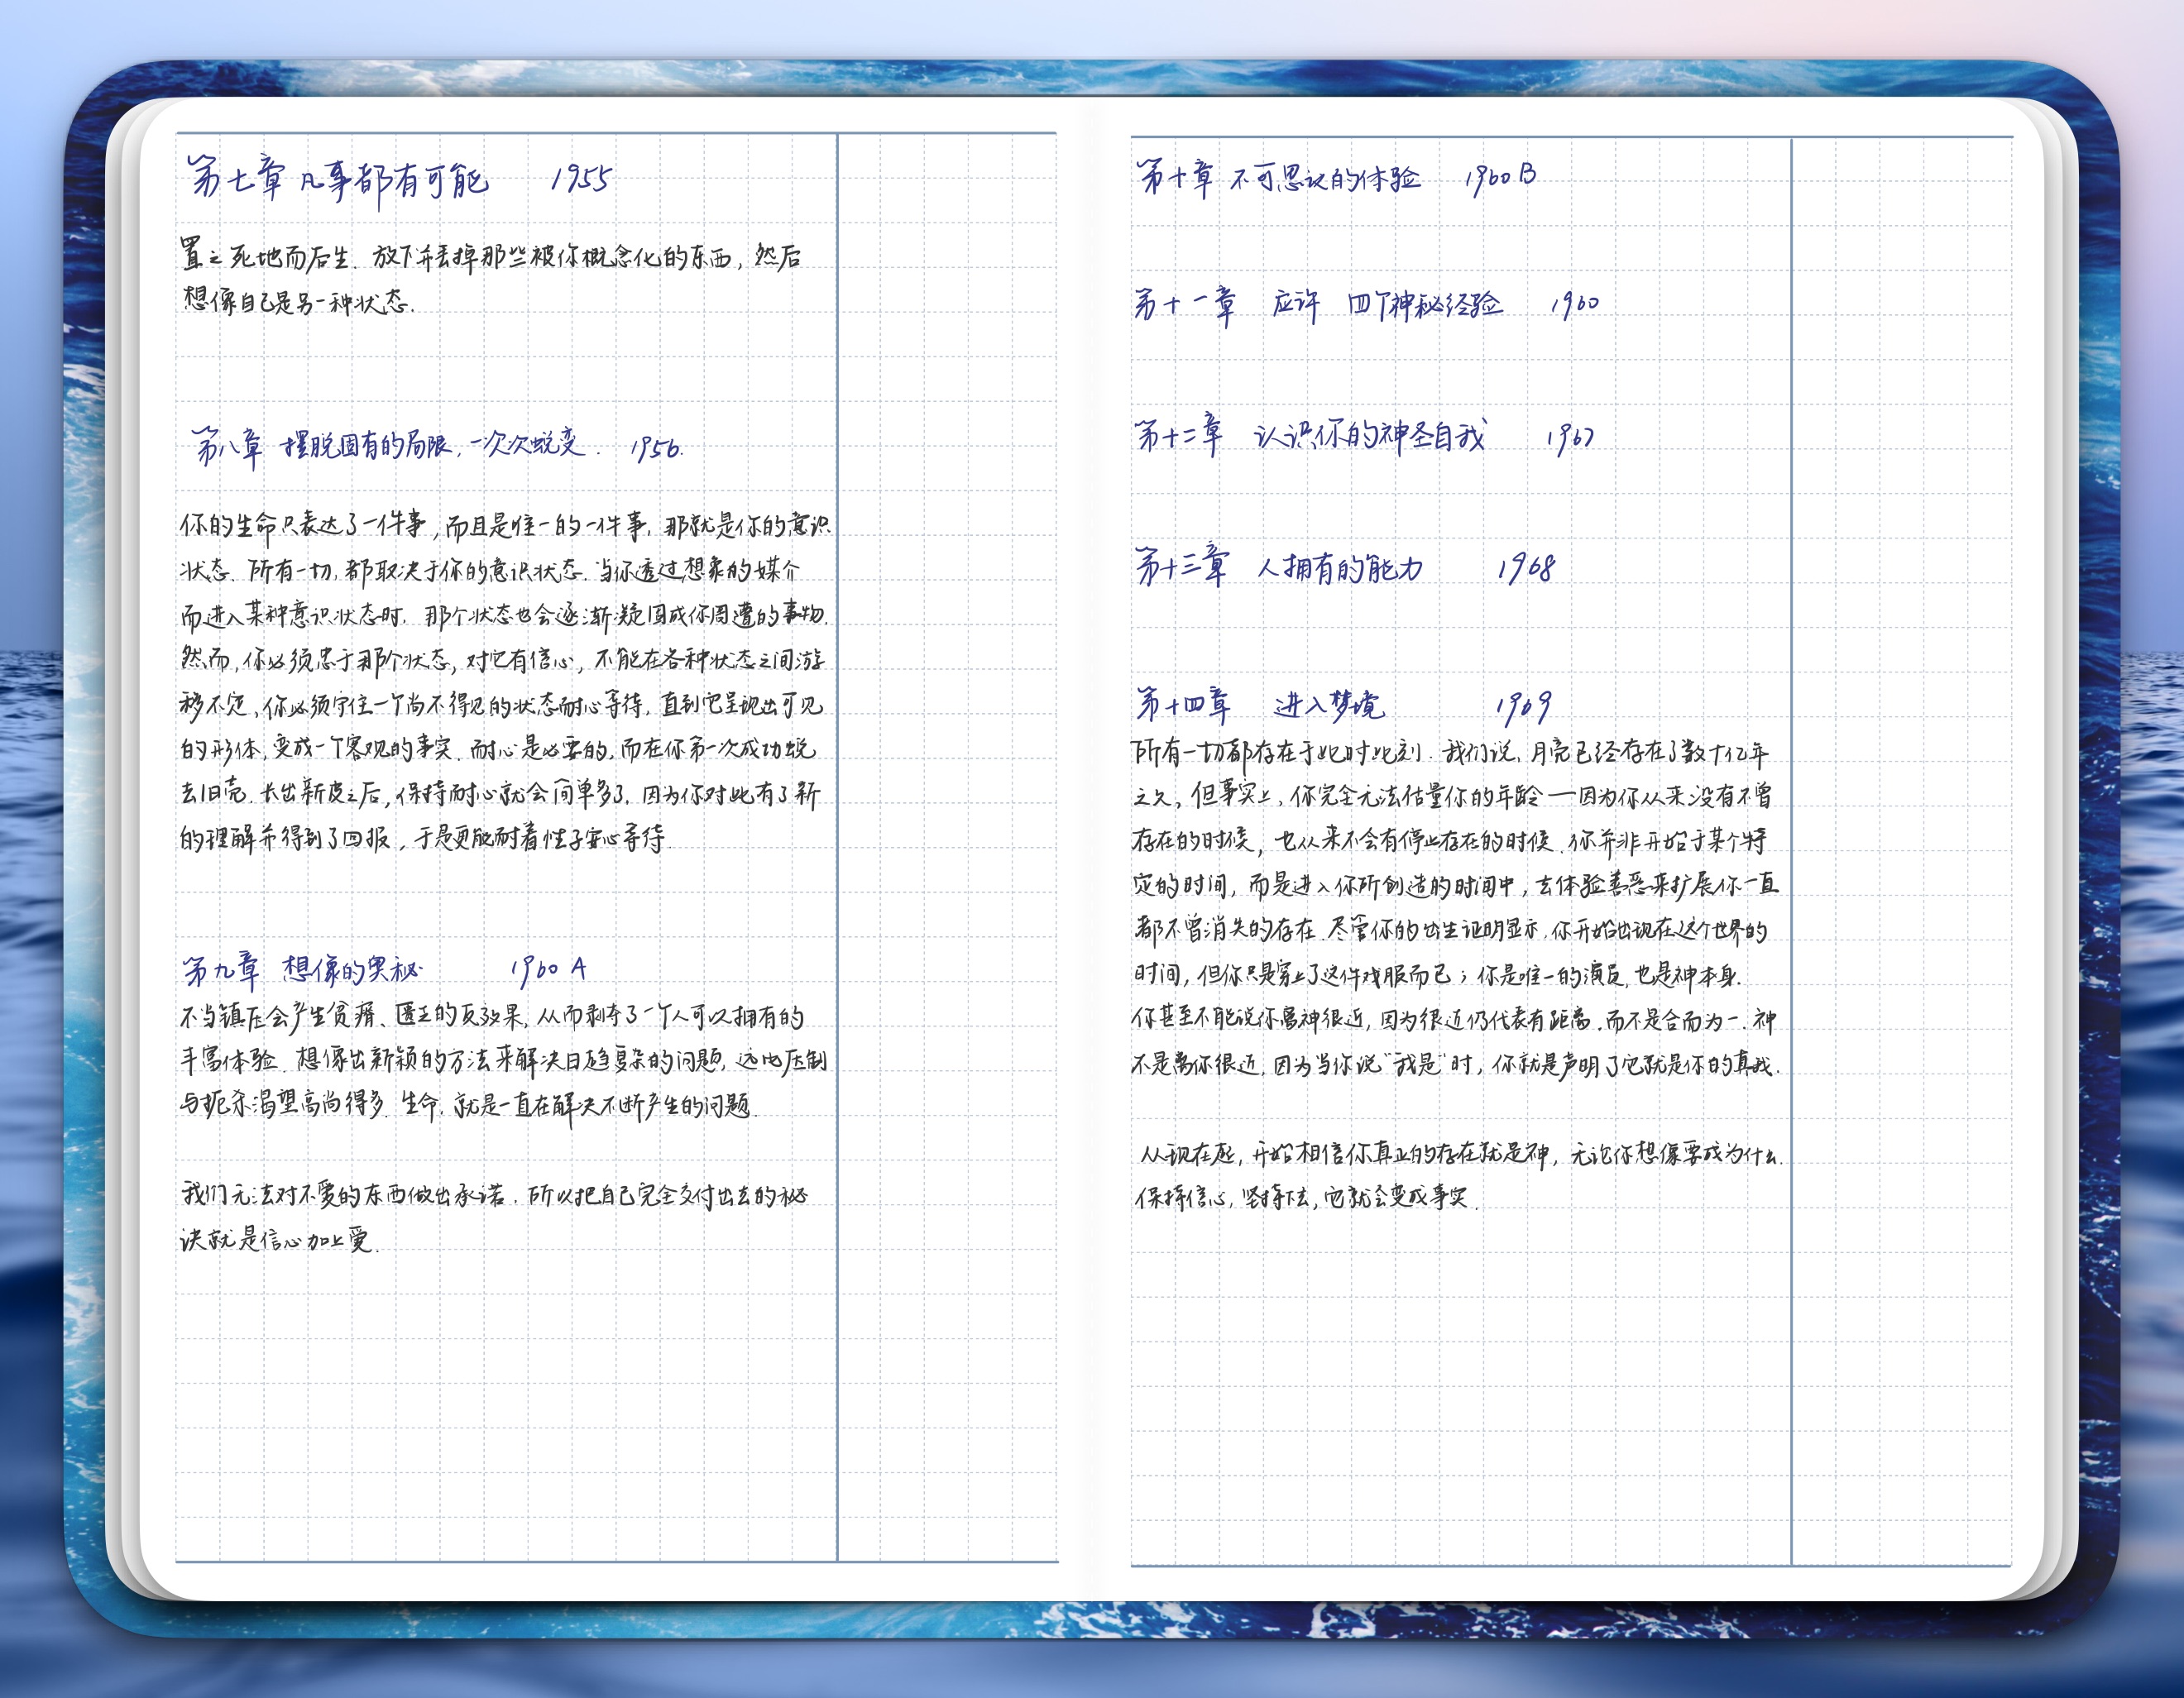 第七章 凡事都有可能 1955
置之死地而后生. 放下并丢掉那些被你概念化的东西, 然后
想像自己是另一种状态.
第八章 摆脱固有的局限, 一次次蜕变. 1956.
你的生命只表达了一件事, 而且是唯一的一件事, 那就是你的意识
状态. 所有一切, 都取决于你的意识状态. 当你透过想象的媒介
而进入某种意识状态时, 那个状态也会逐渐凝固成你周遭的事物.
然而, 你必须忠于那个状态, 对它有信心, 不能在各种状态之间游
移不定, 你必须守住一个尚不得见的状态耐心等待, 直到它呈现出可见
的形体, 变成一个客观的事实. 耐心是必要的, 而在你第一次成功蜕
去旧壳. 长出新皮之后, 保持耐心就会简单多了, 因为你对此有了新
的理解并得到了回报, 于是更能耐着性子安心等待.
第九章 想像的奥秘 1960 A
不当镇压会产生贫瘠、匮乏的反效果, 从而剥夺了一个人可以拥有的
丰富体验. 想像出新颖的方法来解决日趋复杂的问题, 远比压制
与扼杀渴望高尚得多. 生命, 就是一直在解决不断产生的问题.
我们无法对不爱的东西做出承诺. 所以把自己完全交付出去的秘
诀就是信心加上爱.
第十章 不可思议的体验 1960 B
第十一章 应许 四个神秘经验 1960
第十二章 认识你的神圣自我 1967
第十三章 人拥有的能力 1968
第十四章 进入梦境 1969
所有一切都存在于此时此刻. 我们说, 月亮已经存在了数十亿年
之久, 但事实上, 你完全无法估量你的年龄——因为你从来没有不曾
存在的时候, 也从来不会有停止存在的时候. 你并非开始于某个特
定的时间, 而是进入你所创造的时间中, 去体验善恶来扩展你一直
都不曾消失的存在. 尽管你的出生证明显示, 你开始出现在这个世界的
时间, 但你只是穿上了这件戏服而已; 你是唯一的演员, 也是神本身.
你甚至不能说你离神很近, 因为很近仍代表有距离. 而不是合而为一. 神
不是离你很近, 因为当你说“我是”时, 你就是声明了它就是你的真我.
从现在起, 开始相信你真正的存在就是神, 无论你想像要成为什么,
保持信心, 坚持下去, 它就会变成事实.